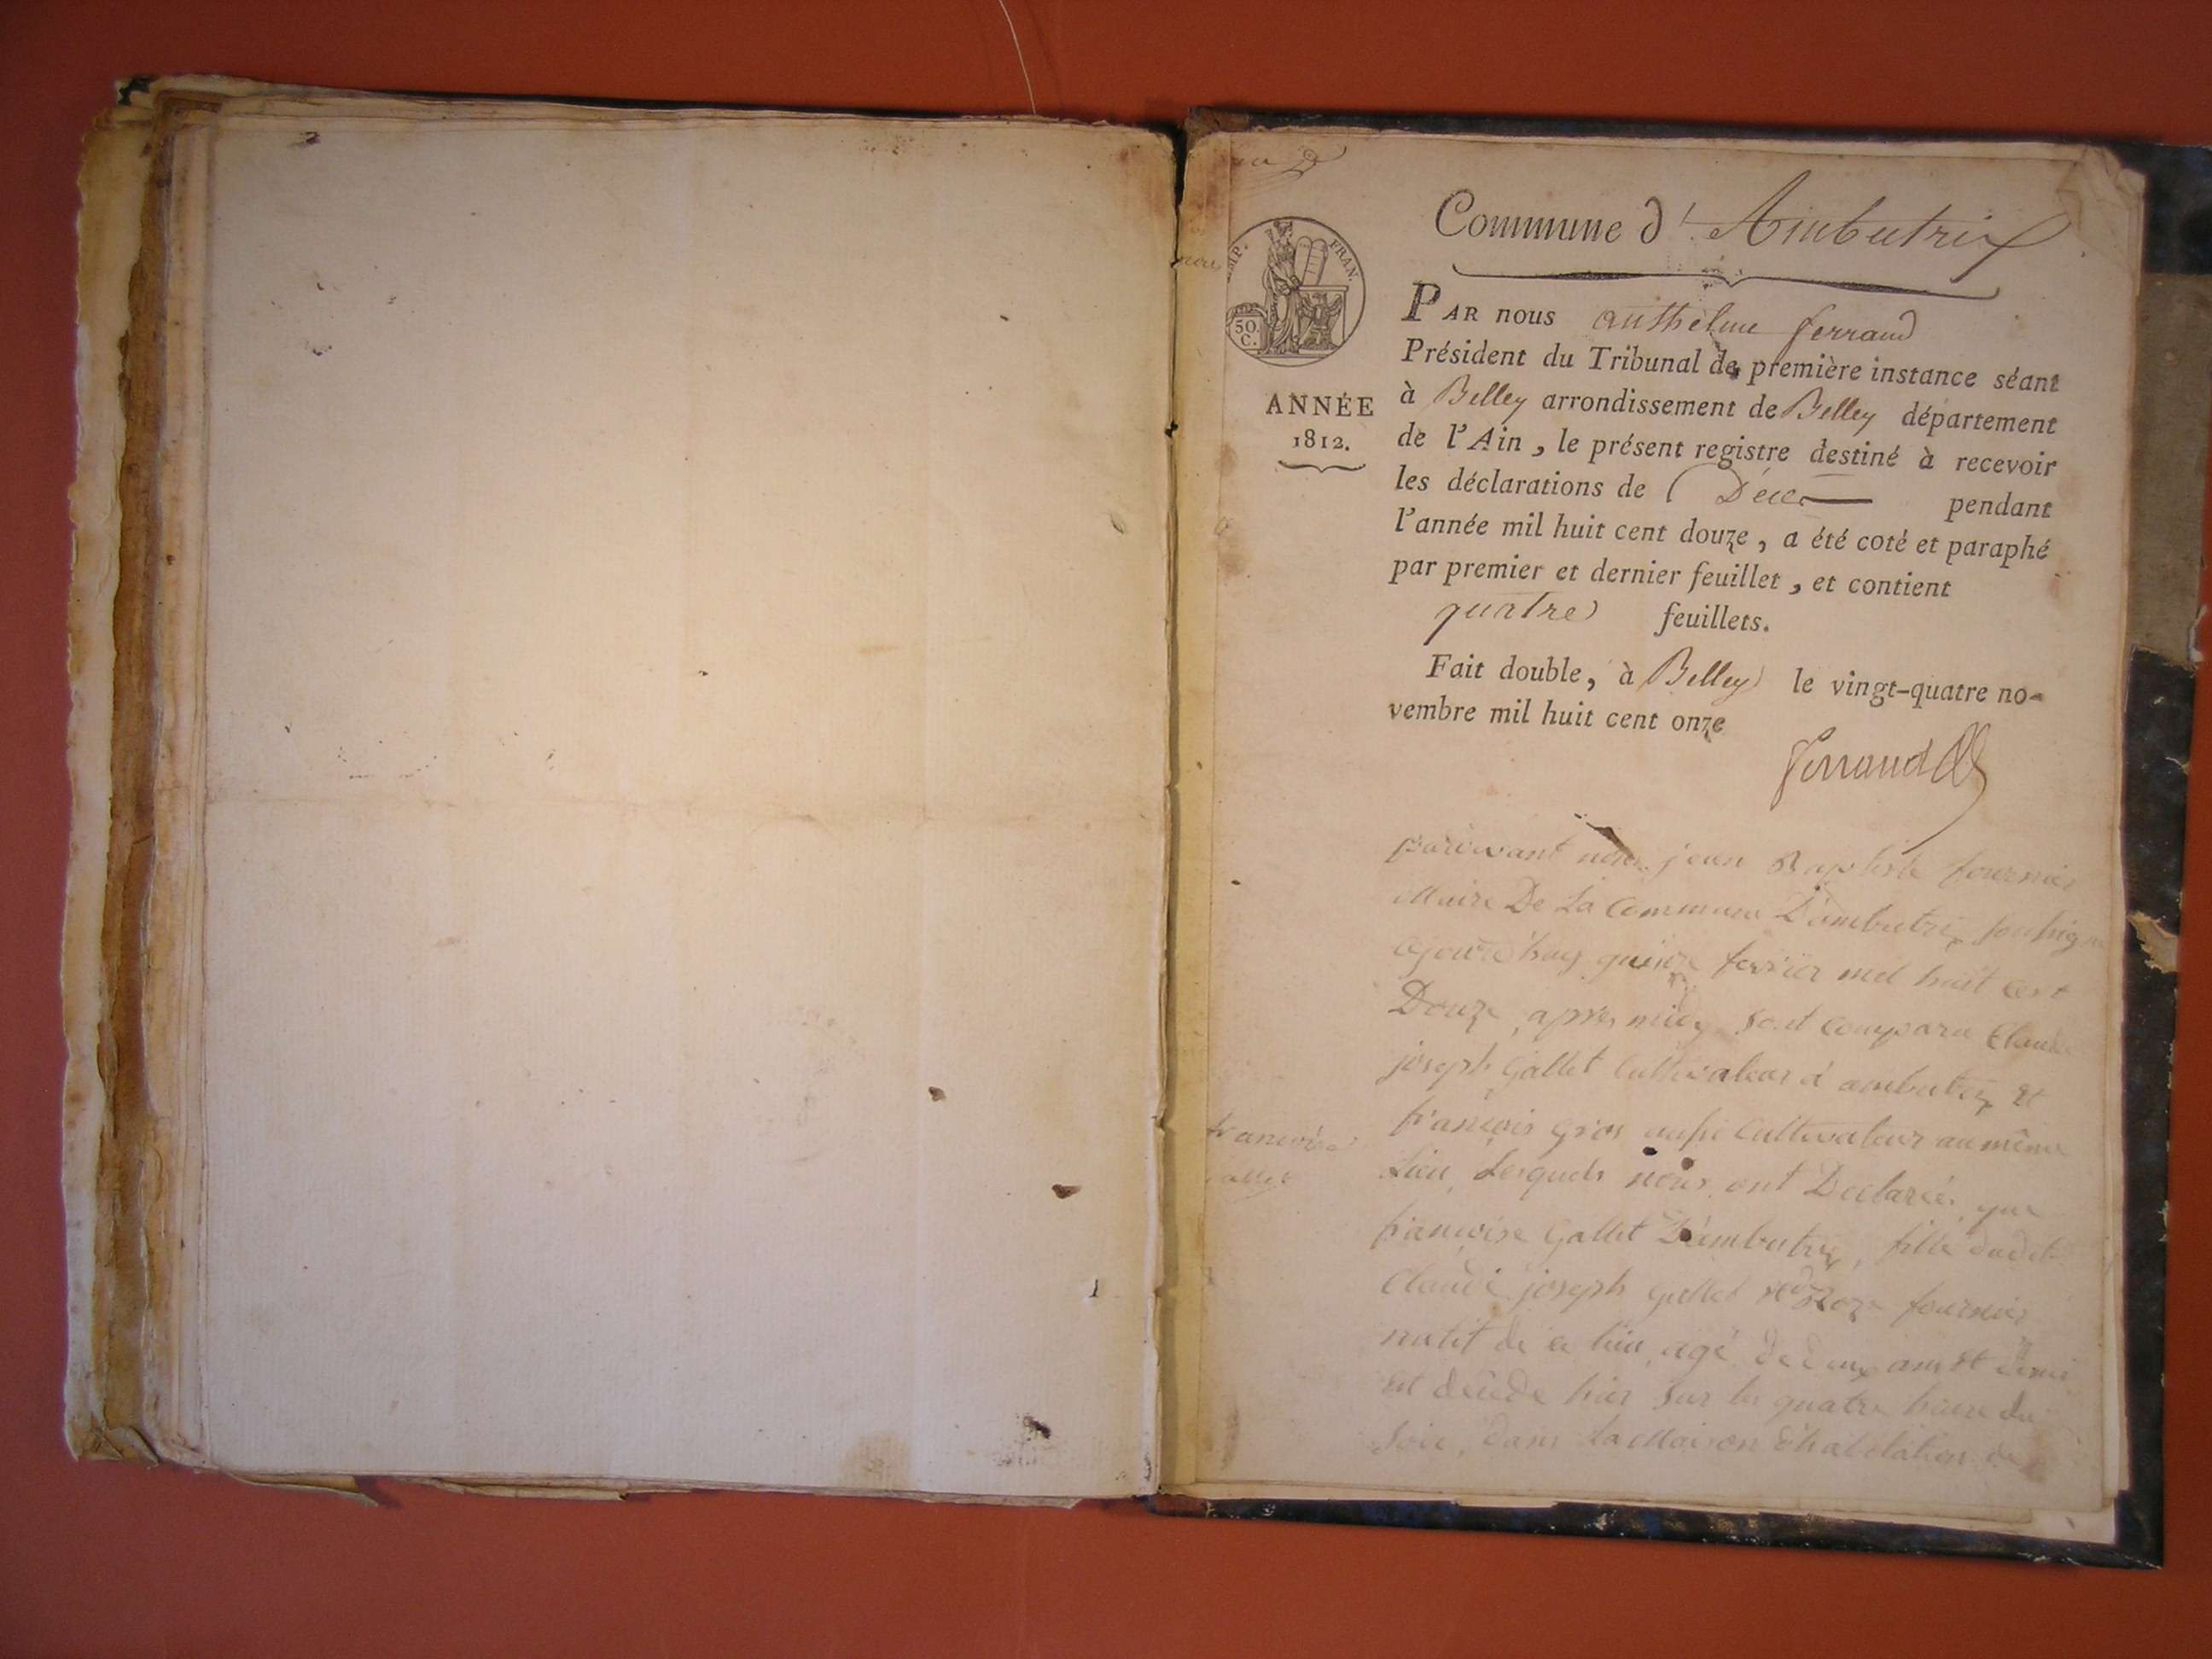 Commune d' Ambutrix
IMP. FRAN.
50.
C.
PAR nous anthelme ferrand
Président du Tribunal de première instance séant
ANNÉE
1812.
à Belley arrondissement de Belley département
de l'Ain, le présent registre destiné à recevoir
les déclarations de Décès pendant
l'année mil huit cent douze, a été coté et paraphé
par premier et dernier feuillet, et contient
quatre feuillets.
Fait double, à Belley le vingt-quatre no-
vembre mil huit cent onze
ferrand
pardevant nous jean Baptiste fournier
Maire De La Commune D'ambutrix soussigné
quinze fevrier mil huit cent
Douze, apres midy sont comparu Claude
joseph Gallet Cultivateur a ambutrix et
francois Gros aussi Cultivateur au même
Lieu, Lesquels nous ont Declarés, que
francoise
Gallet
francoise Gallet D'ambutrix, fille dudit
Claude joseph Gallet et de Roze fournier
natif de ce lieu, agé de deux ans et demi
est décédé hier sur les quatre heure du
Soir, dans la Maison d'habitation du